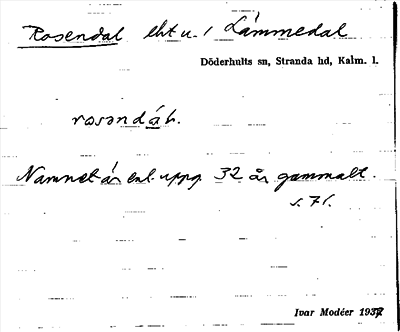 Rosendal eht u. / Lämmedal
Döderhults sn, Stranda hd, Kalm. l.
rosəndáh.
Namnet är enl. uppg. 32 år gammalt.
s. 71.
Ivar Modéer 1937